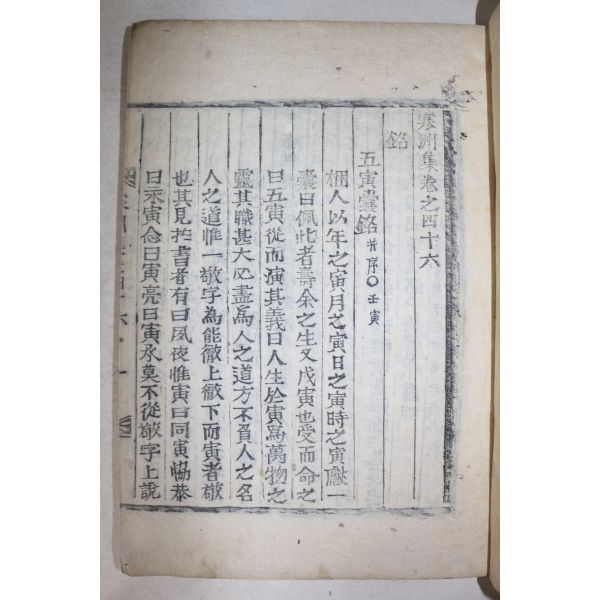 寒洲集卷之四十六
銘
五寅囊銘 並序○壬寅
梱人以年之寅月之寅日之寅時之寅獻一
囊曰佩此者壽余之生又戊寅也受而命之
曰五寅從而演其義曰人生於寅爲萬物之
靈其職甚大必盡爲人之道方不負人之名
人之道惟一敬字為能徹上徹下而寅者敬
也其見於書者有曰夙夜惟寅曰同寅協恭
曰永寅念曰寅亮曰寅承莫不從敬字上說